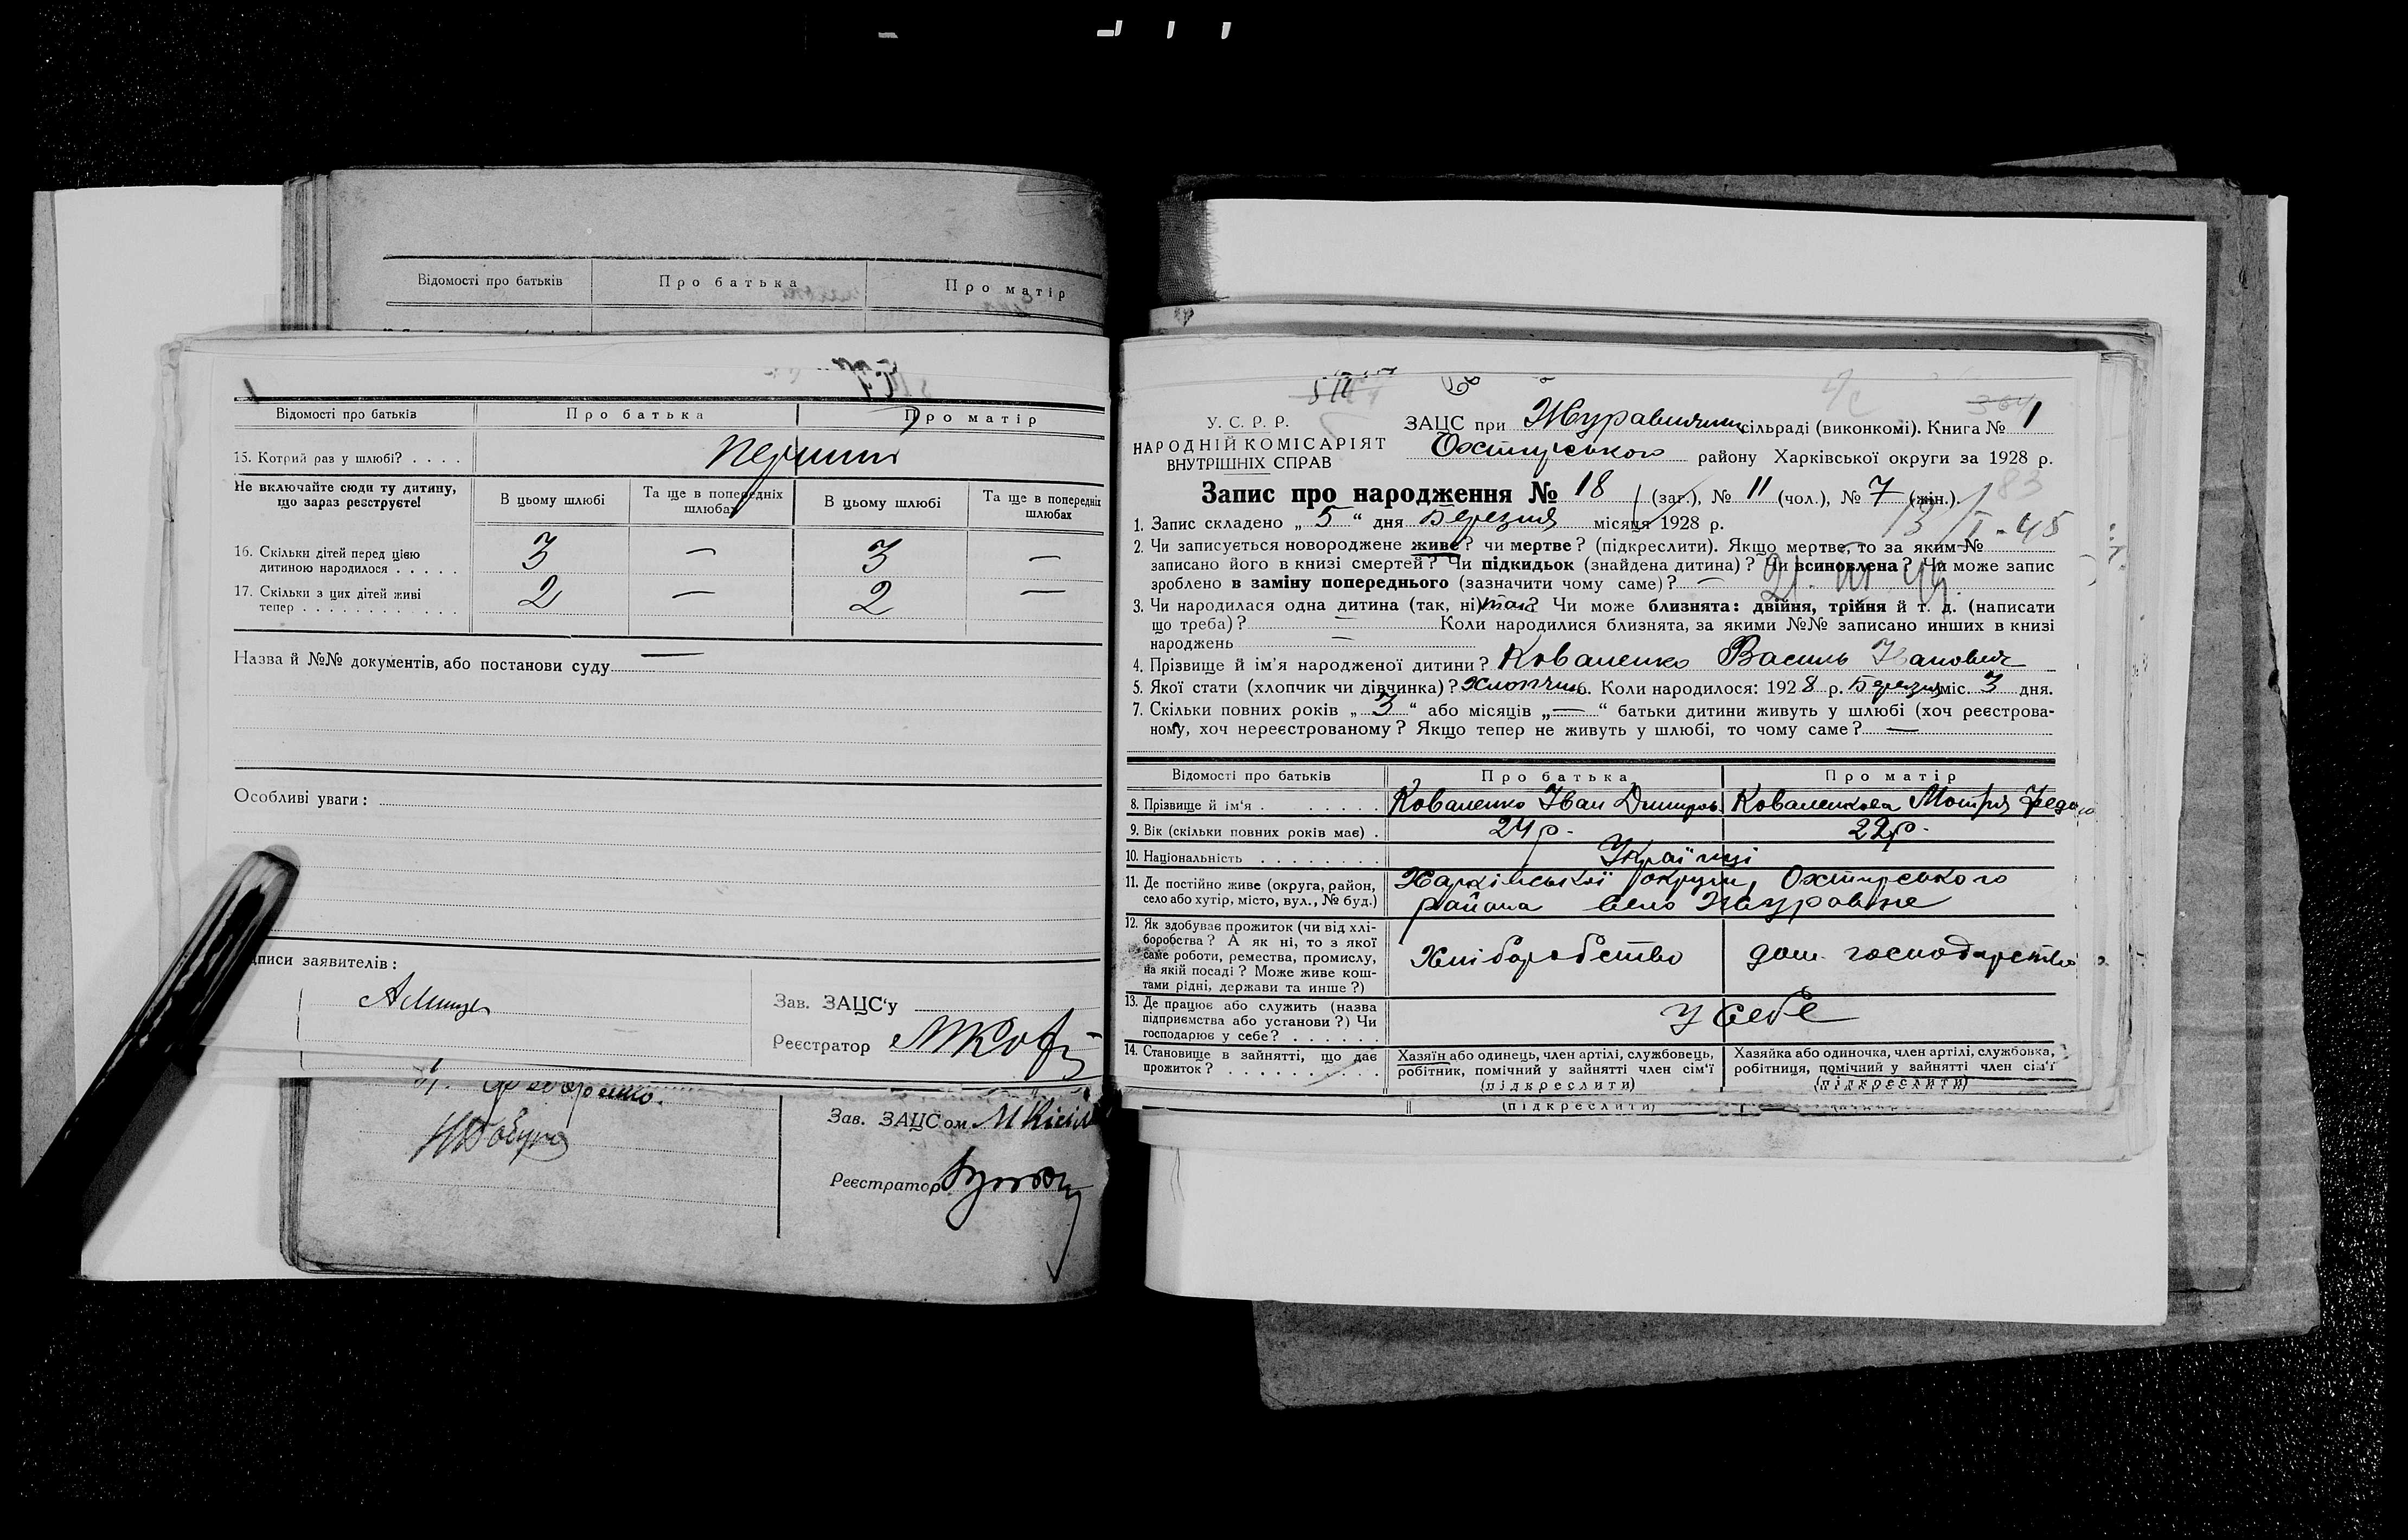 Відомості про батьків Про батька Про матір
Відомості про батьків Про батька Про матір
15. Котрий раз у шлюбі? . . . .
Не включайте сюди ту дитину, що зараз реєструєте!
В цьому шлюбі Та ще в попередніх шлюбах В цьому шлюбі Та ще в попередніх шлюбах
16. Скільки дітей перед цією
дитиною народилося . . . . . 3 — 3 —
17. Скільки з цих дітей живі
тепер . . . . . . . . . . . . 2 — 2 —
Назва й №№ документів, або постанови суду —
Особливі уваги:
дписи заявителів:
Зав. ЗАЦС‘у
Реєстратор
Зав. ЗАЦСом
Реєстратор
У. С. Р. Р.
НАРОДНІЙ КОМІСАРІЯТ
ВНУТРІШНІХ СПРАВ
364
ЗАЦС при сільраді (виконкомі). Книга № 1
Охтирського району Харківської округи за 1928 р.
Запис про народження № 18 (заг.), № 11 (чол.), № 7 (жін.).
83
1. Запис складено „ 5 “ дня Березня місяця 1928 р.
13/I-45
2. Чи записується новороджене живе? чи мертве? (підкреслити). Якщо мертве, то за яким №
записано його в книзі смертей? Чи підкидьок (знайдена дитина)? Чи всиновлена? Чи може запис
зроблено в заміну попереднього (зазначити чому саме)? —
3. Чи народилася одна дитина (так, ні) так? Чи може близнята: двійня, трійня й т. д. (написати
що треба)? — Коли народилися близнята, за якими №№ записано инших в книзі
народжень —
4. Прізвище й ім‘я народженої дитини? Коваленко Василь Іванович
5. Якої стати (хлопчик чи дівчинка)? Хлопчик 6. Коли народилося: 1928 р. Березня міс. 3 дня.
7. Скільки повних років „ 3 “ або місяців „ — “ батьки дитини живуть у шлюбі (хоч реєстрова-
ному, хоч нереєстрованому? Якщо тепер не живуть у шлюбі, то чому саме? —
Відомості про батьків Про батька Про матір
8. Прізвище й ім‘я . . . . . . Коваленко Іван Дмитров. Коваленкова Мотря
9. Вік (скільки повних років має) . 24 р. 22 р.
10. Національність . . . . . . . . Українці
11. Де постійно живе (округа, район,
село або хутір, місто, вул., № буд.)
Харківської округи, Охтирського
района село Журавне
12. Як здобуває прожиток (чи від хлі-
боробства? А як ні, то з якої
саме роботи, ремества, промислу,
на якій посаді? Може живе кош-
тами рідні, держави та инше?)
Хліборобство дом. господарство
13. Де працює або служить (назва
підприємства або установи?) Чи
господарює у себе? . . . . . .
у себе
14. Становище в зайнятті, що дає
прожиток? . . . . . . . . . .
Хазяїн або одинець, член артілі, службовець,
робітник, помічний у зайнятті член сім‘ї
(підкреслити)
Хазяйка або одиночка, член артілі, службовка,
робітниця, помічний у зайнятті член сім‘ї
(підкреслити)
(підкреслити)